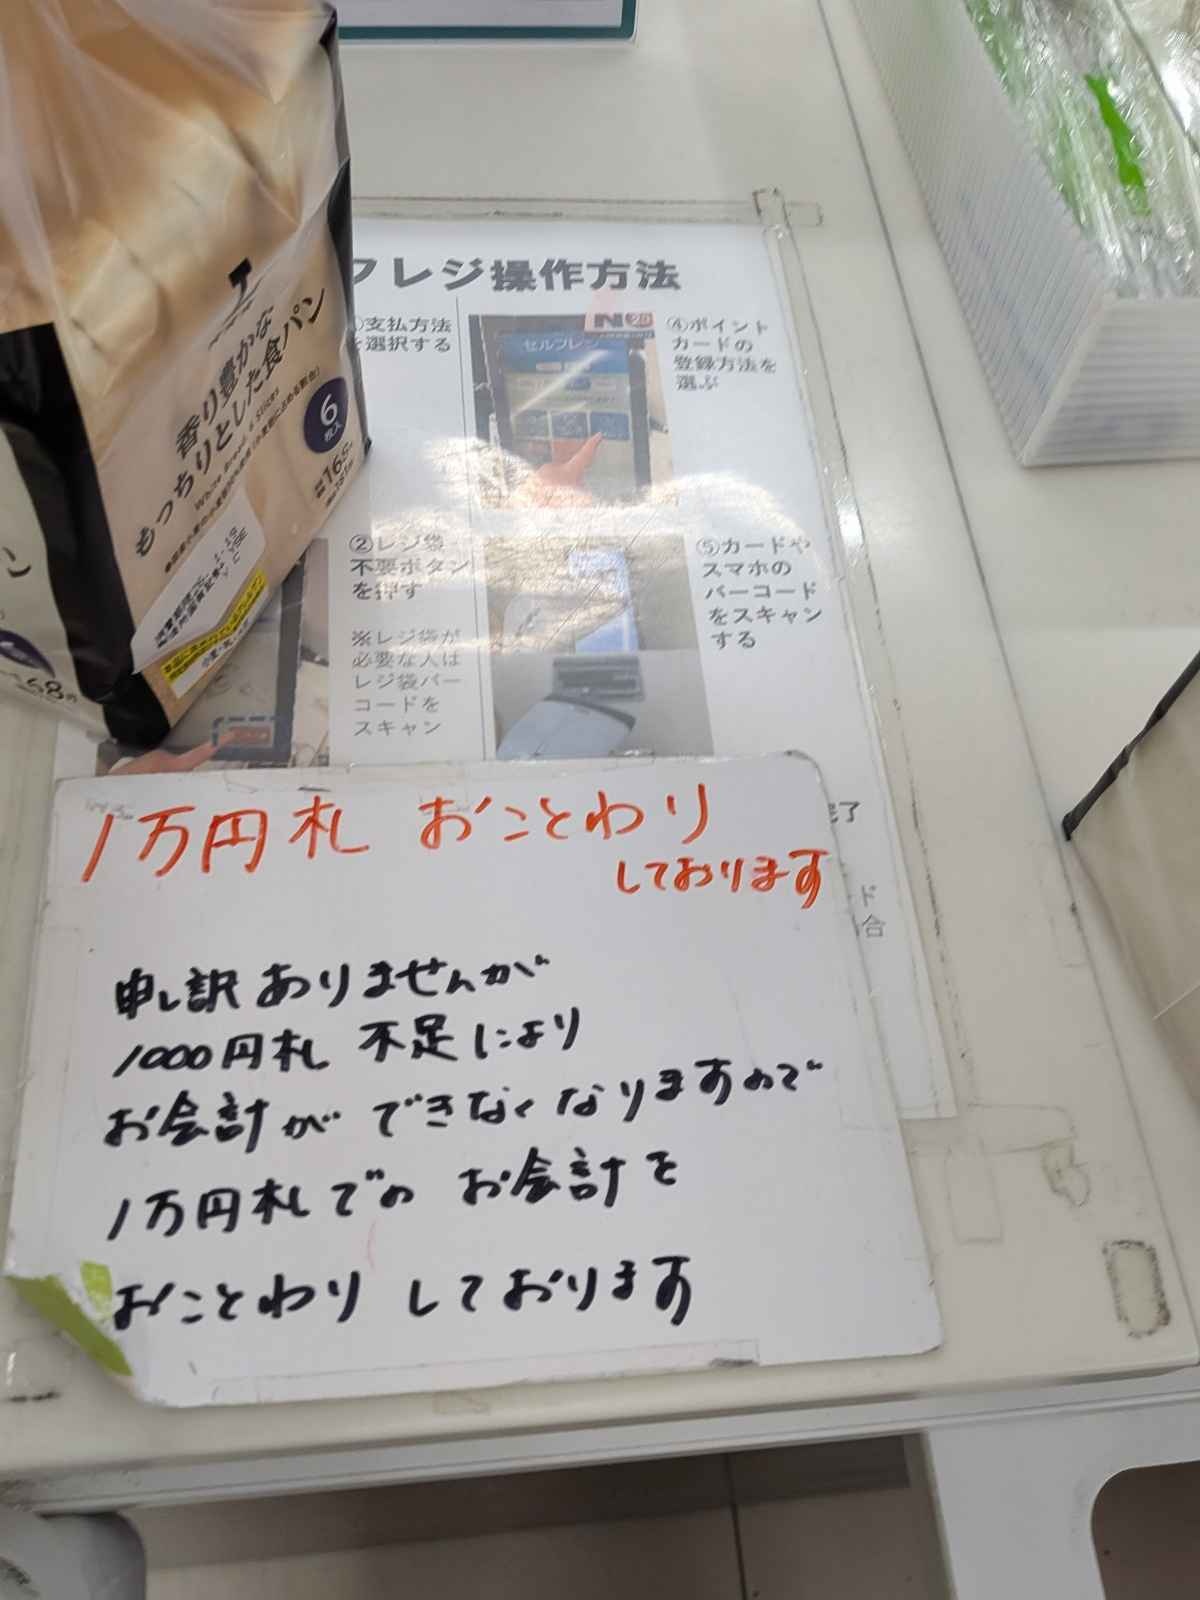 フレジ操作方法
支払方法
選択する
セルフレジ
④ポイント
カードの
登録方法を
選ぶ
香り豊かな
もっちりとした食パン
White Bread, 6 Slices
6
枚入
②レジ袋
不要ボタン
を押す
※レジ袋が
必要な人は
レジ袋バー
コードを
スキャン
⑤カードや
スマホの
バーコード
をスキャン
する
完了
ド
合
1万円札 おことわり
しております
申し訳ありませんが
1000円札 不足により
お会計が できなくなりますので
1万円札での お会計を
おことわり しております